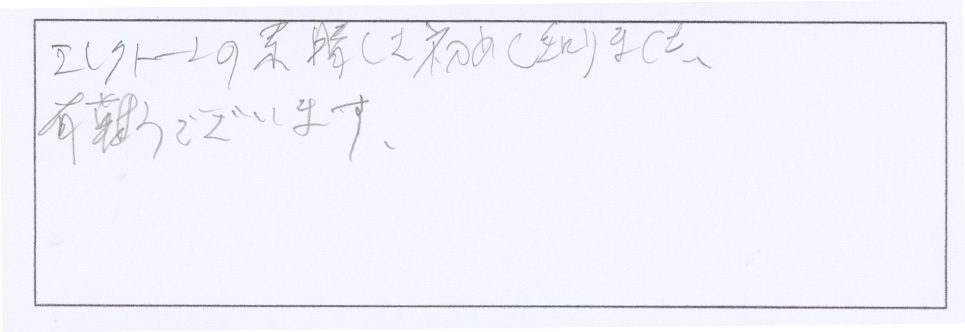 エレクトーンの素晴しさ初めて知りました、
有難うございます、